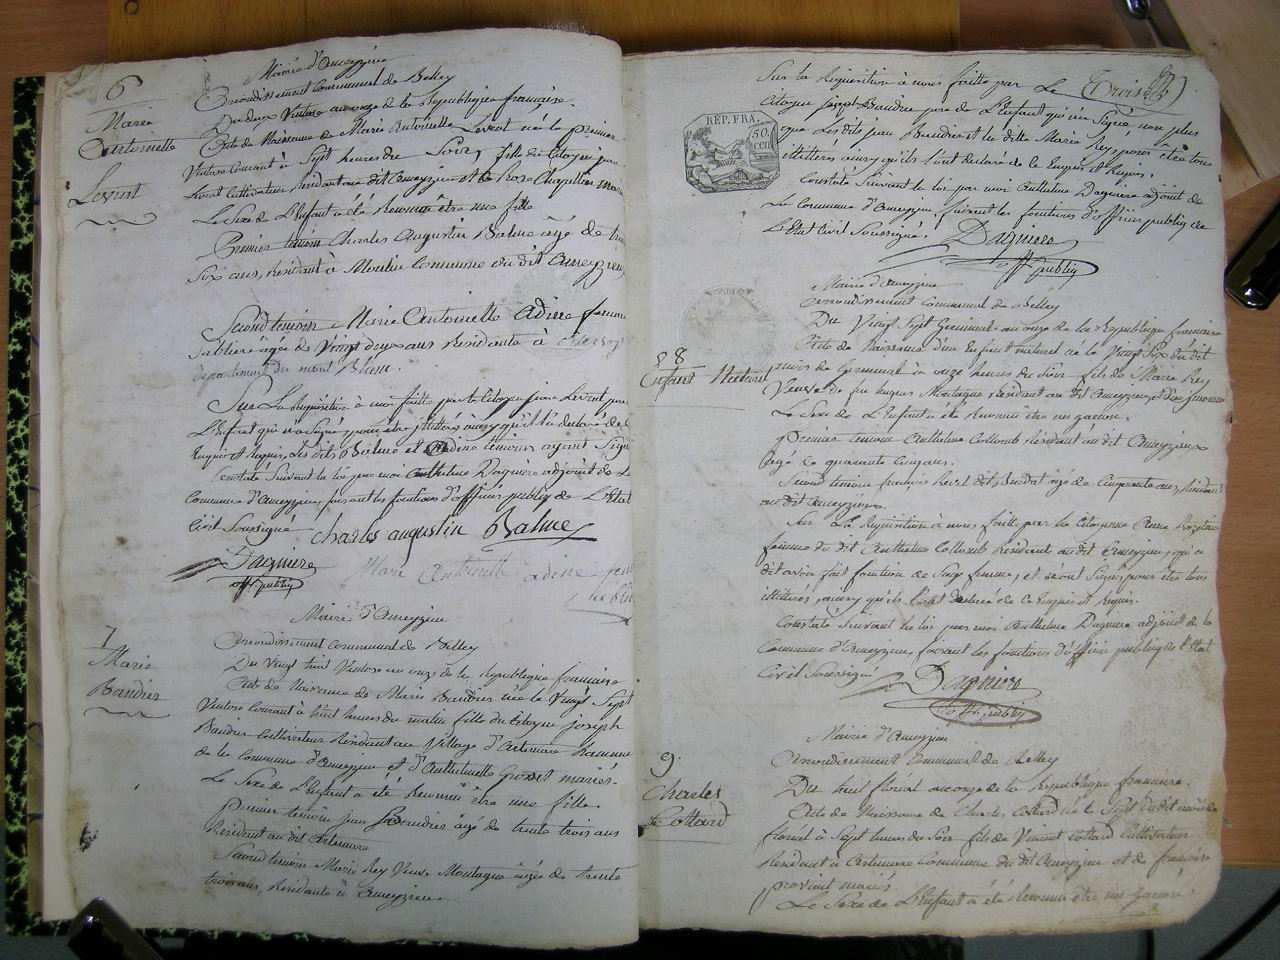 Mairie d'Ameyzieu
6
Marie
Antoinette
Levent
Arrondissement Communal de Belley
Du deux Ventose an onze de la République française.
Acte de Naissance de Marie Antoinette Levent née le premier
Ventose Courant à Sept heures du Soir, fille du Citoyen jean
Levent Cultivateur Résidant au dit Ameyzieu et de Rose Chapellier
Le Sexe de L'Enfant a été Reconnu être une fille
Premier témoin Charles Augustin Balme âgé de
Six ans, Résidant à Commune du dit Ameyzieu
Second témoin Marie Antoinette Adine femme
Sublier âgée de Vingt deux ans Résidante à
département du mont Blanc.
Sur La Réquisition à nous faitte par le Citoyen jean Levent père
L'Enfant qui n'a Signé pour être illiteré ainsy qu'il l'a déclaré de
Enquis et Requis, Les dits Balme et Adine témoins ayant Signé
Constaté Suivant la loi par moi Anthelme Dagniere adjoint de La
Commune d'Ameyzieu, faisant les fonctions d'officier public de L'Etat
Civil Soussigné Charles augustin Balme
Dagniere
off. public
Marie Antoinette adine
Mairie d'Ameyzieu
7
Marie
Baudier
Arrondissement Communal de Belley
Du Vingt huit Ventose an onze de la République française
Acte de Naissance de Marie Baudier née le Vingt Sept
Ventose Courant à huit heures du matin fille du Citoyen joseph
Baudier Cultivateur Résidant au Village d'Artemare hameau
de la Commune d'Ameyzieu et d'Anthelmette mariés.
Le Sexe de L'Enfant a été Reconnu être une fille.
Premier témoin jean Baudier âgé de trente trois ans
Résidant au dit Artemare
Second témoin Marie Rey Veuve Montagne âgée de trente
trois ans, Résidante à Ameyzieu
Troisième
RÉP. FRA.
50.
CEN
Sur la Réquisition à nous faitte par Le
Citoyen joseph Baudier père de L'Enfant qui n'a Signé, non plus
que Les dits jean Baudier et la ditte Marie Rey, pour être tous
illitérés ainsy qu'ils l'ont déclaré de ce Enquis et Requis.
Constaté Suivant la loi par moi Anthelme Dagniere adjoint de
La Commune d'Ameyzieu, faisant les fonctions d'officier public de
L'Etat Civil Soussigné.
Dagniere
off. public
Mairie d'Ameyzieu
Arrondissement Communal de Belley
8
Enfant Naturel
Du Vingt Sept Germinal an onze de la République française
Acte de Naissance d'un Enfant naturel né le Vingt Six du dit
mois de Germinal à onze heures du Soir fils de Marie Rey
Veuve de feu Montagne Résidant au dit Ameyzieu
Le Sexe de L'Enfant a été Reconnu être un garçon.
Premier témoin Anthelme Collomb Résidant au dit Ameyzieux
âgé de quarante cinq ans.
Second témoin françois dit âgé de Cinquante ans, Résidant
au dit Ameyzieu.
Sur La Réquisition à nous faitte par La Citoyenne
femme du dit Anthelme Collomb Résidant au dit Ameyzieu, qui a
dit avoir fait fonction de Sage femme, et n'ont Signé pour être tous
illitérés, ainsy qu'ils l'ont déclaré de ce Enquis et Requis.
Constaté Suivant la loi par moi Anthelme Dagniere adjoint de la
Commune d'Ameyzieu, faisant les fonctions d'officier public de l'Etat
Civil Soussigné
Dagniere
off. public
Mairie d'Ameyzieu
9.
Charles
Cottard
Arrondissement Communal de Belley
Du huit floréal an onze de la République française.
Acte de Naissance de Charles Cottard né le Sept du dit mois de
floréal à Sept heures du Soir fils de Vincent Cottard Cultivateur
Résidant à Artemare Commune du dit Ameyzieu et de françoise
mariés.
Le Sexe de L'Enfant a été Reconnu être un garçon.